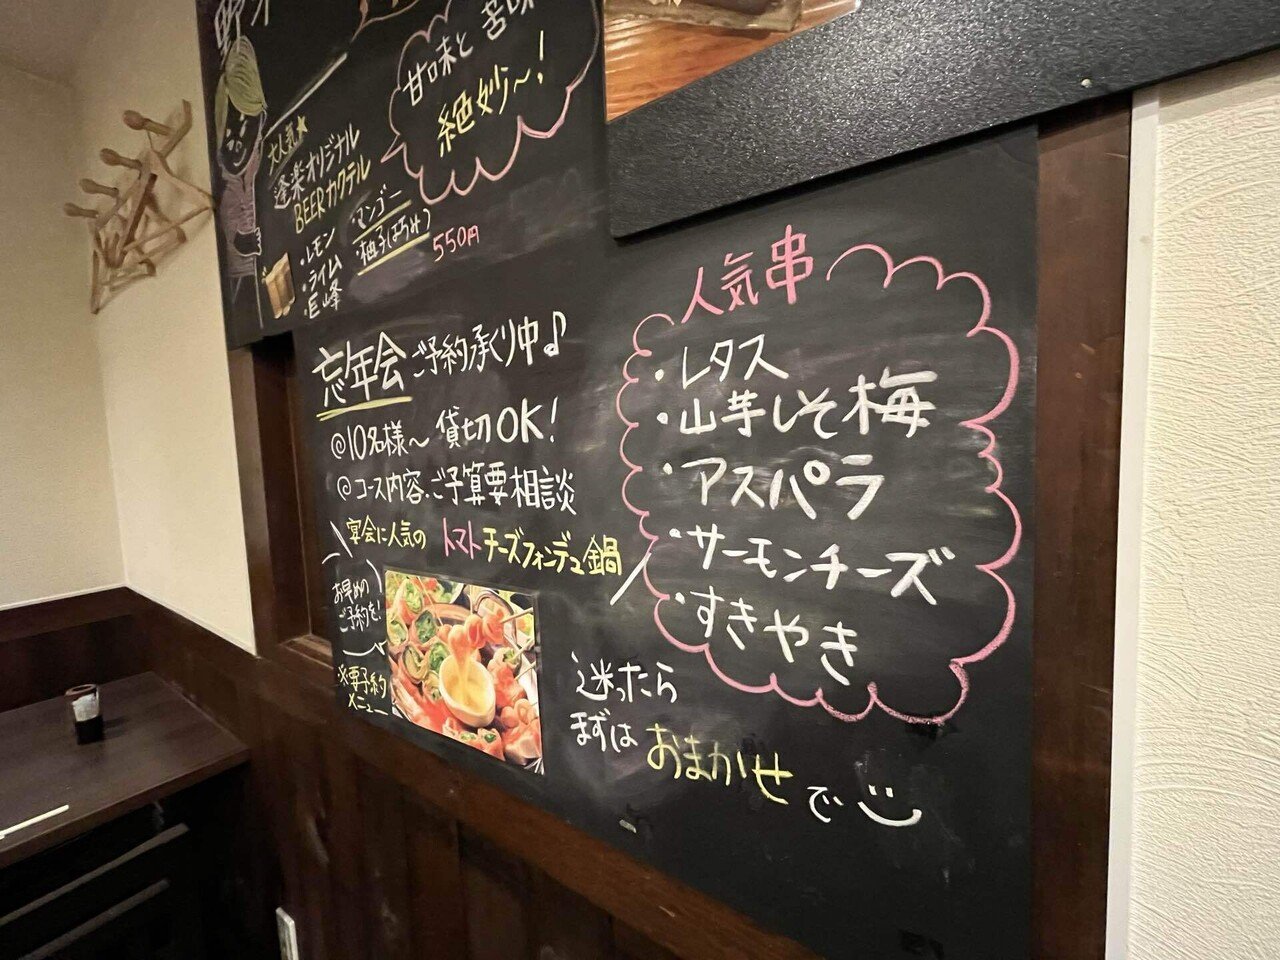 甘味と苦味
絶妙〜!
大人気★
逢楽オリジナル
BEERカクテル
・レモン
・ライム
・巨峰
・マンゴー
・柚子(はちみつ)
550円
忘年会ご予約承り中♪
@10名様〜貸切OK!
@コース内容、ご予算要相談
宴会に人気の トマトチーズフォンデュ鍋
お早めの
ご予約を!
※要予約
メニュー
人気串
・レタス
・山芋しそ梅
・アスパラ
・サーモンチーズ
・すきやき
迷ったら
まずは おまかせで